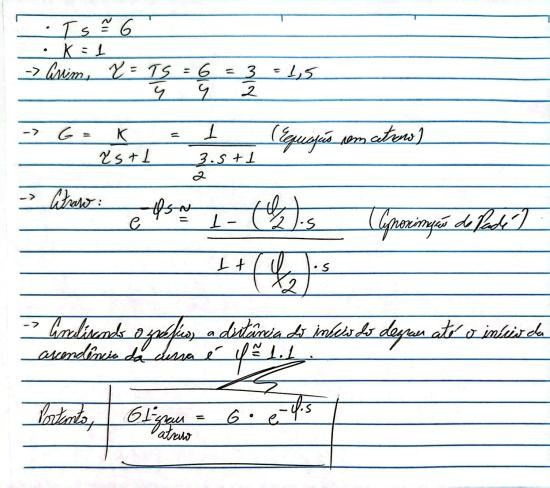 · Ts ≅ 6
· K = 1
-> Assim, τ = Ts/4 = 6/4 = 3/2 = 1,5
-> G = K/(τs+1) = 1/(3/2.s+1) (Equação sem atraso)
-> Atraso: e^-φs ≅ (1 - (φ/2).s)/(1 + (φ/2).s) (Aproximação de Padé)
-> Analisando o gráfico, a distância do início do degrau até o início da
ascendência da curva é φ ≅ 1.1.
Portanto, G1ºgrau atraso = G · e^-φ.s